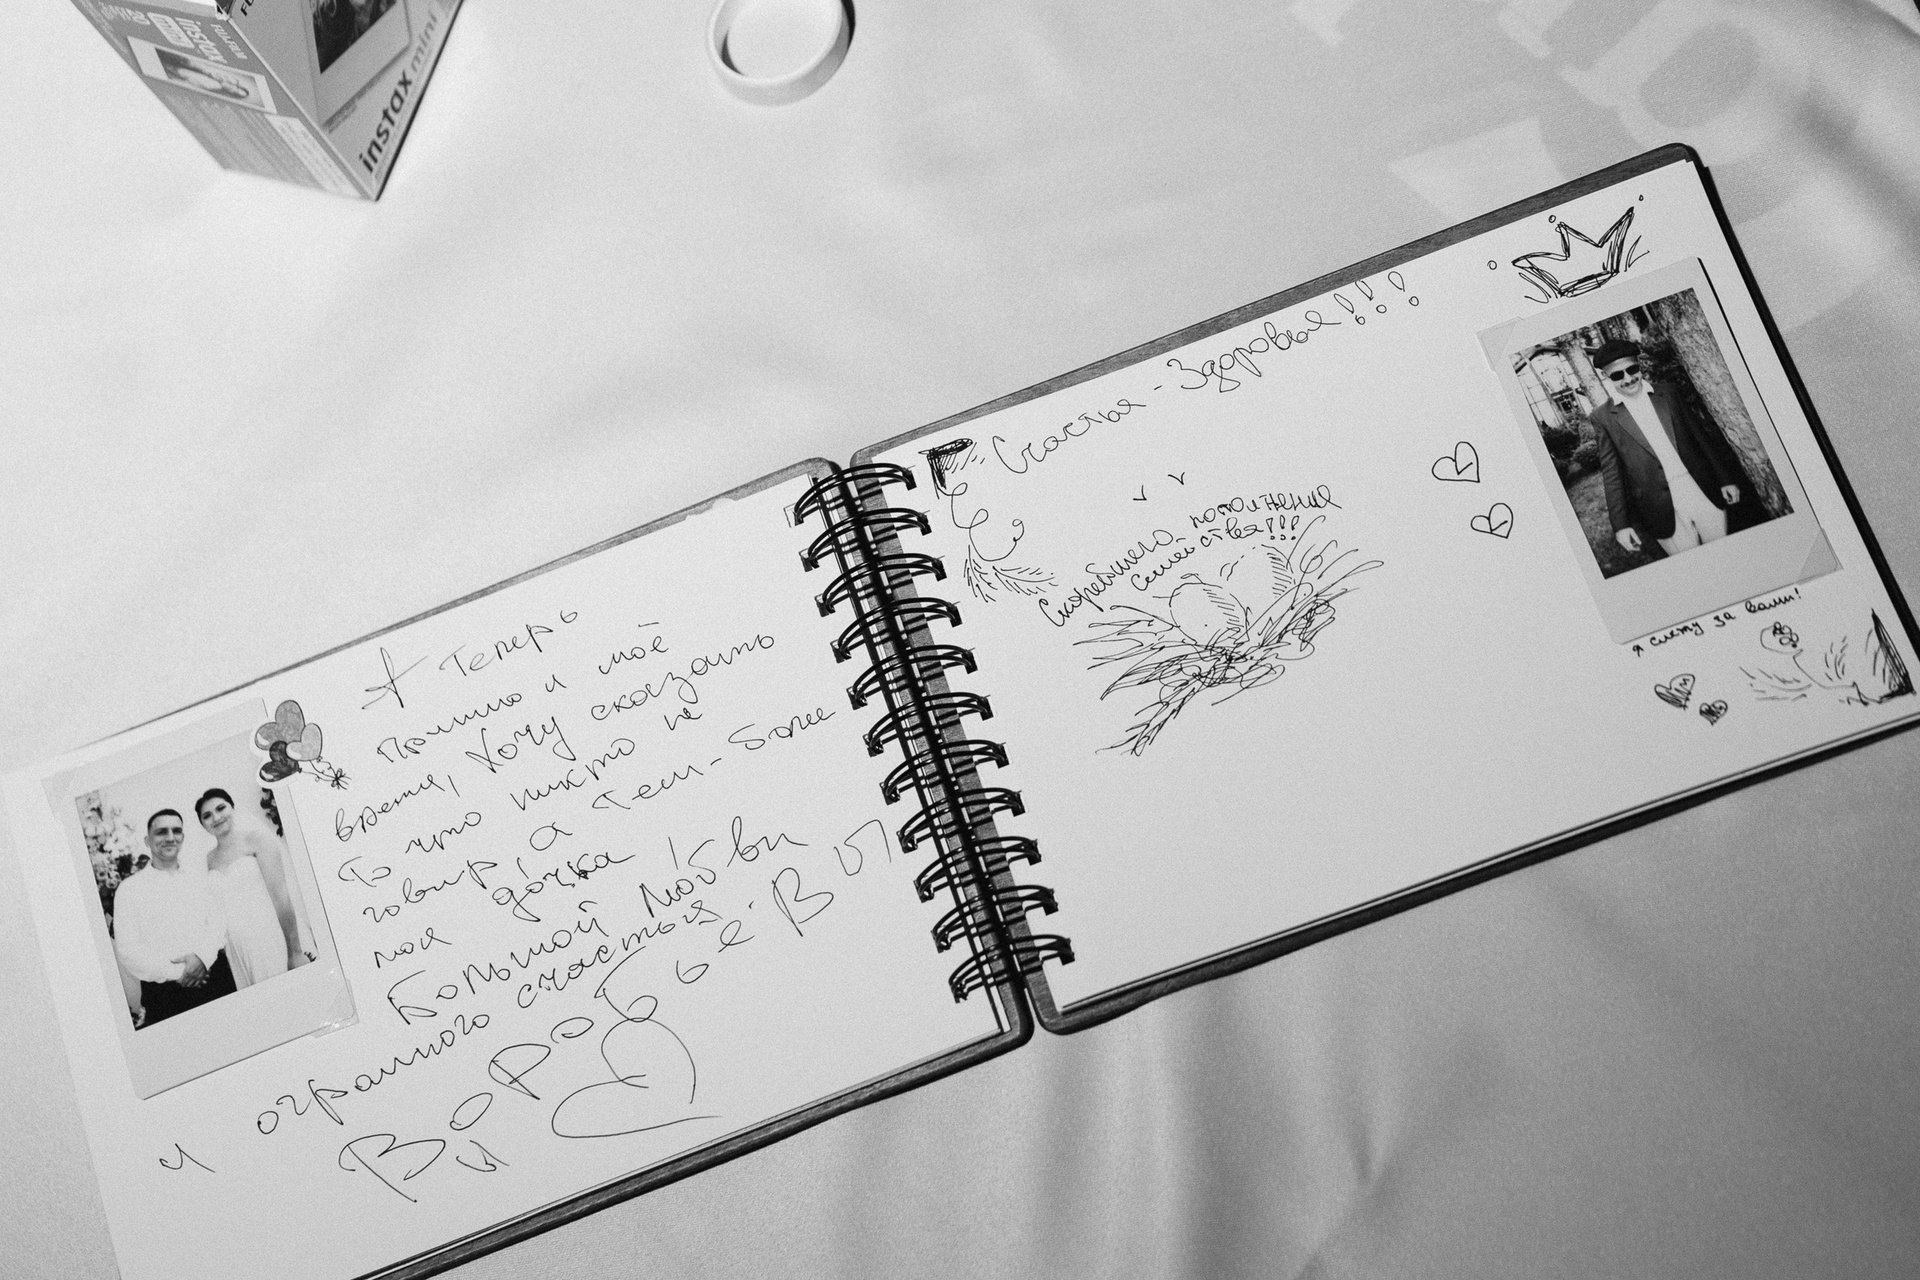 FUJIFILM
instax
instax mini
А Теперь
Пришло и моё
время, Хочу сказать
То что никто не
говор, а Тем-более
моя дочка!
Большой Любви
и огромного счастья
Воробьё Вы
Счастья - Здоровья!!!
Скорейшего пополнения
семейства!!!
Я слежу за вами!